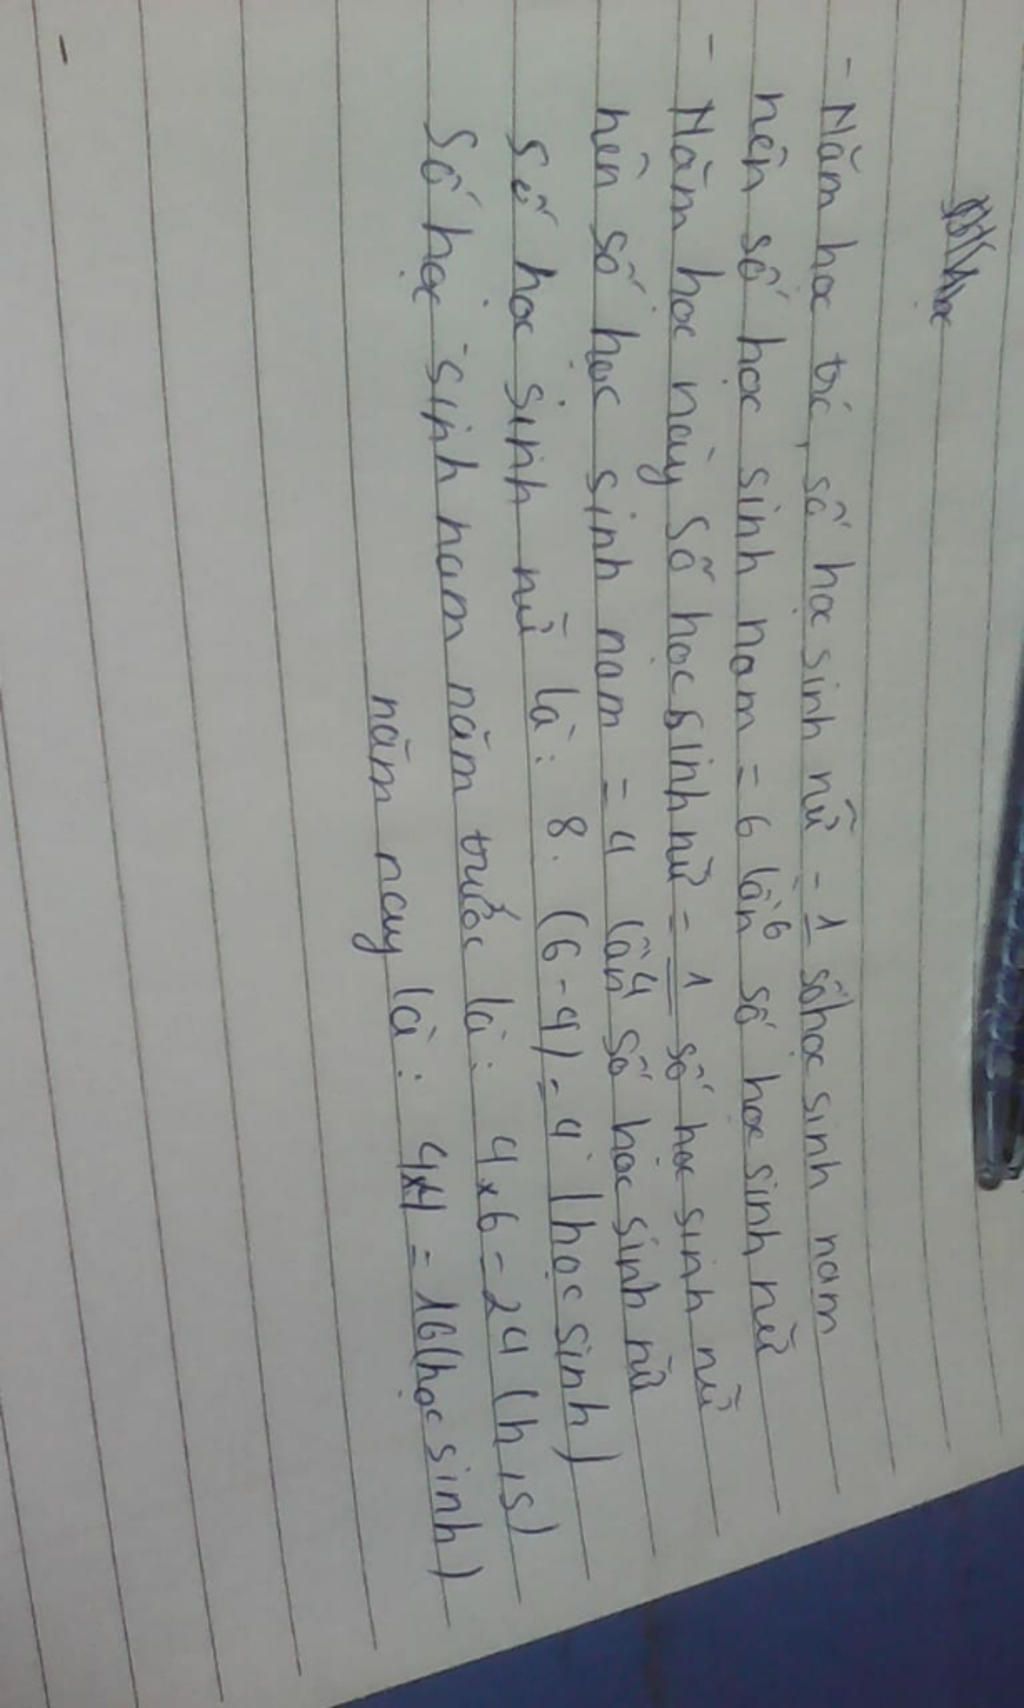 - Năm học trc, số học sinh nữ = 1/6 số học sinh nam
nên số học sinh nam = 6 lần số học sinh nữ
- Năm học này số học sinh nữ = 1/4 số học sinh nữ
nên số học sinh nam = 4 lần số học sinh nữ
Số học sinh nữ là: 8 : (6-4) = 4 (học sinh)
Số học sinh nam năm trước là: 4x6=24 (h/s)
năm nay là: 4x4=16 (học sinh)